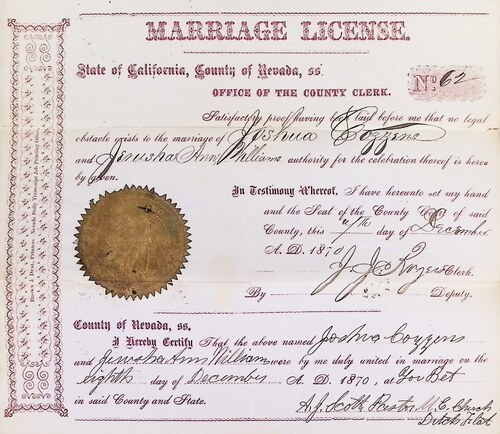 MARRIAGE LICENSE.
State of California, County of Nevada, ss.
No. 62
OFFICE OF THE COUNTY CLERK.
Satisfactory proof having been laid before me that no legal
obstacle exists to the marriage of Joshua Coggens
and Jerusha Ann Williams authority for the celebration thereof is hereby
given.
In Testimony Whereof, I have hereunto set my hand
and the Seal of the County Court of said
County, this 7th day of December
A. D. 1870
J. J. Rogers Clerk.
By Deputy.
County of Nevada, ss.
I Hereby Certify That the above named Joshua Coggens
and Jerusha Ann Williams were by me duly united in marriage on the
eighth day of December A. D. 1870, at You Bet
in said County and State.
A. J. Scott Pastor M. E. Church
Dutch Flat